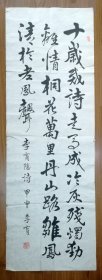 十歲裁詩走馬成冷灰殘燭動
離情桐花萬里丹山路雛鳳
清於老鳳聲 李商隱詩 甲申 李育